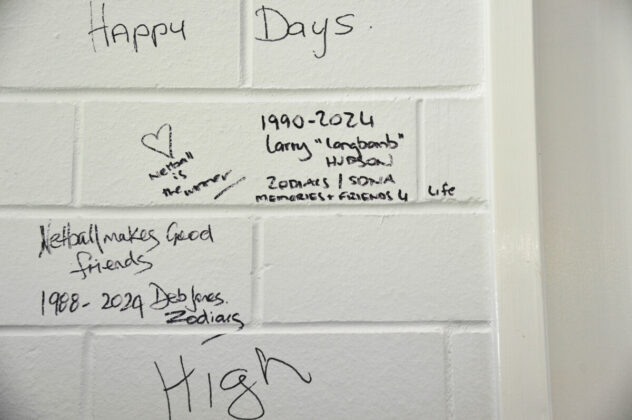 Happy Days.
Netball
is
the winner
1990-2024
Larry "Longbomb"
HUDSON
ZODIACS / SDNA
MEMORIES + FRIENDS 4 Life
Netball makes Good
friends
1988-2024 Deb Jones.
Zodiacs
High